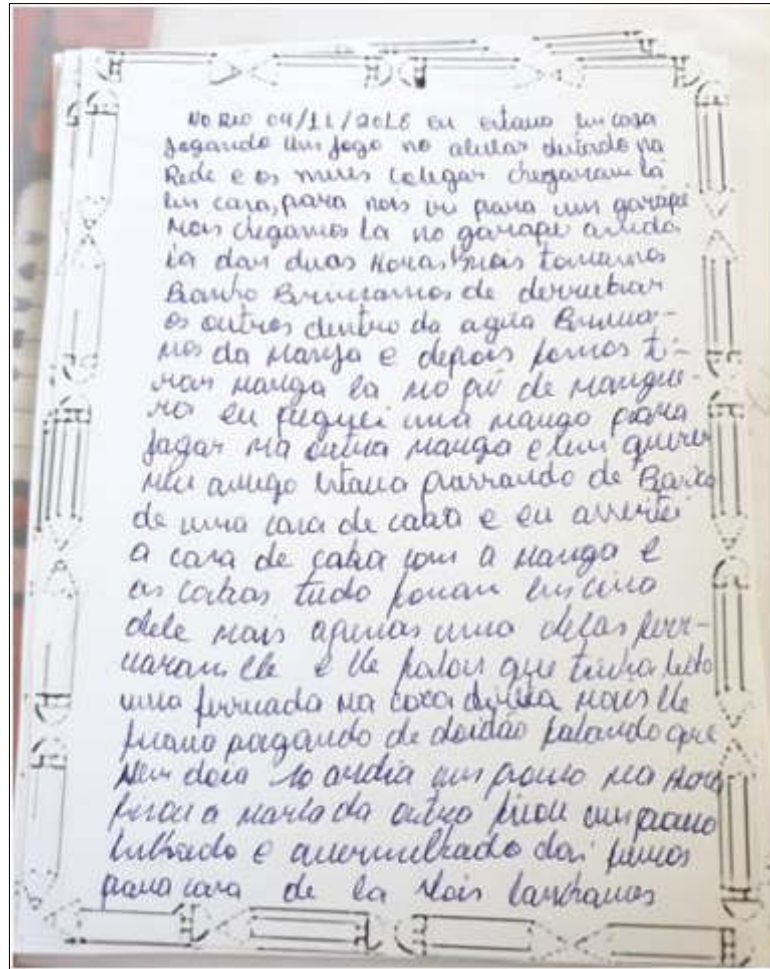 No Rio 04/11/2018 eu estava em casa
jogando um jogo no celular deitado na
Rede e os meus colegas chegaram lá
em casa, para nois ir para um garapé
Nois chegamos la no garapé
la das duas Horas nois tomamos
Banho Brincamos de derrubar
os outros dentro da agua Brinca-
mos da Manja e depois fomos ti-
rar manga la no pé de mangue-
ra eu peguei uma manga para
jogar na outra manga e sem querer
meu amigo estava passando de Baixo
de uma casa de caba e eu assertei
a casa de caba com a manga e
as cabas tudo foram em cima
dele mais apenas uma delas ferr-
uaram ele e ele falou que tinha
uma ferruada na coxa mais ele
ficava pagando de doidão falando que
Nem doia so ardia um pouco na Hora
ficou a marca da ficou um pouco
inchado e avermelhado dai fumos
para casa de la Nois lanchamos